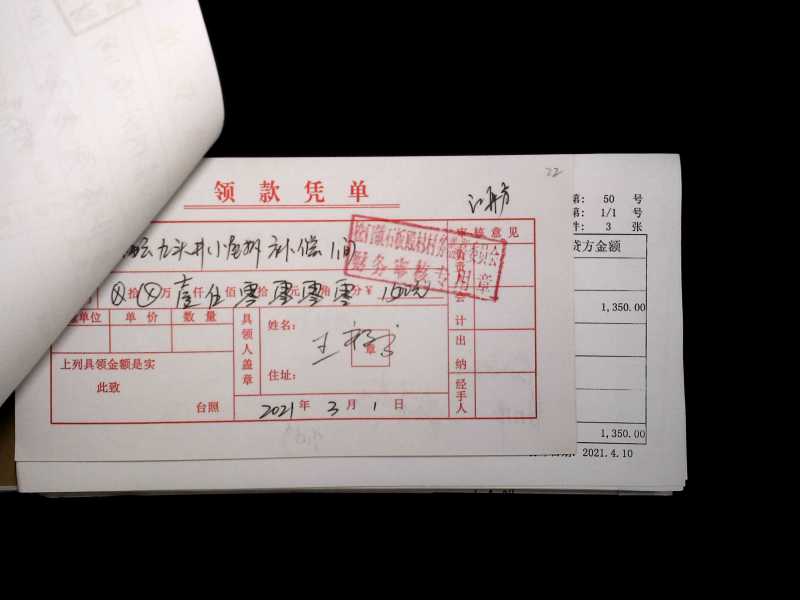 22
领款凭单
第: 50 号
第: 1/1 号
件: 3 张
贷方金额
1,350.00
1,350.00
2021.4.10
九头井小房屋补偿1间
审核意见
财务审核专用章
ⓧ拾ⓧ万壹仟伍佰零拾零元零角零分¥1500元
单位 单价 数量
具领人盖章
姓名:
章
住址:
会计
出纳
经手人
上列具领金额是实
此致
台照
2021年3月1日